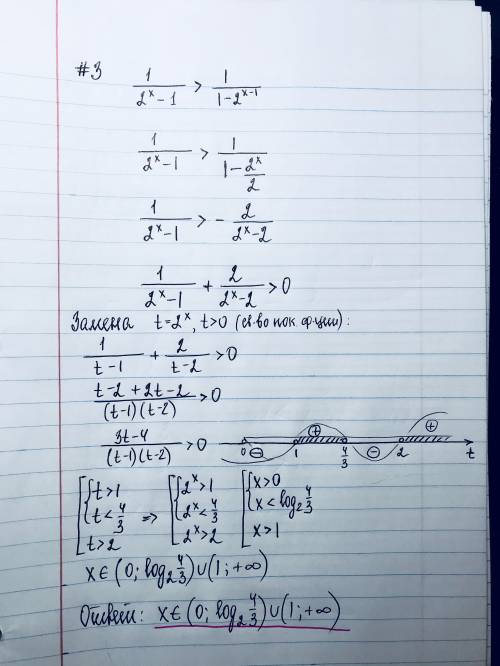 #3
1/(2^x − 1) > 1/(1 − 2^(x−1))
1/(2^x − 1) > 1/(1 − 2^x/2)
1/(2^x − 1) > − 2/(2^x − 2)
1/(2^x − 1) + 2/(2^x − 2) > 0
Замена t = 2^x, t > 0 (св-во пок. ф-ции):
1/(t − 1) + 2/(t − 2) > 0
(t − 2 + 2t − 2)/((t−1)(t−2)) > 0
(3t − 4)/((t−1)(t−2)) > 0
0 ⊖ 1 ⊕ 4/3 ⊖ 2 ⊕ t
[ { t > 1 ; t < 4/3 ; t > 2 => [ { 2^x > 1 ; 2^x < 4/3 ; 2^x > 2 [ { x > 0 ; x < log₂ 4/3 ; x > 1
x ∈ (0; log₂ 4/3) ∪ (1; +∞)
Ответ: x ∈ (0; log₂ 4/3) ∪ (1; +∞)